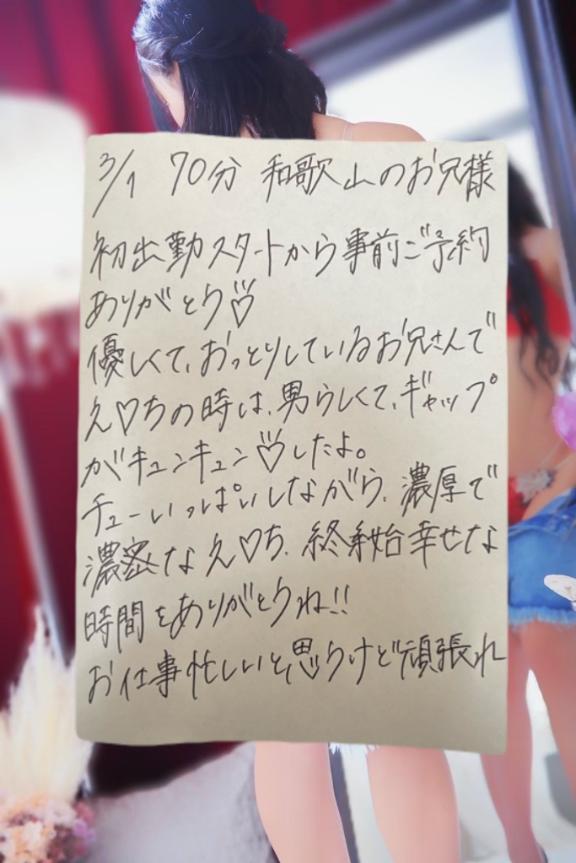 3/1 70分 和歌山のお兄様
初出勤スタートから事前ご予約
ありがとう♡
優しくて、おっとりしているお兄さんで
え♡ちの時は、男らしくて、ギャップ
がキュンキュン♡したよ。
チューいっぱいしながら、濃厚で
濃密なえ♡ち、終始幸せな
時間をありがとうね!!
お仕事忙しいと思うけど頑張れ